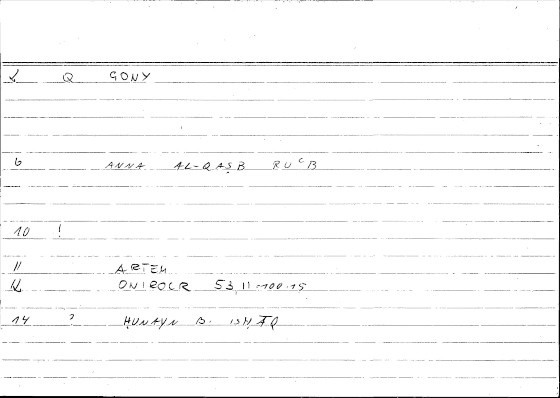 Q GONY
6 ANNA AL-QAṢB RUᶜB
10 !
11 ARTEM
12 ONIROCR 53,11-100.15
14 ? ḤUNAYN B. ISḤĀQ